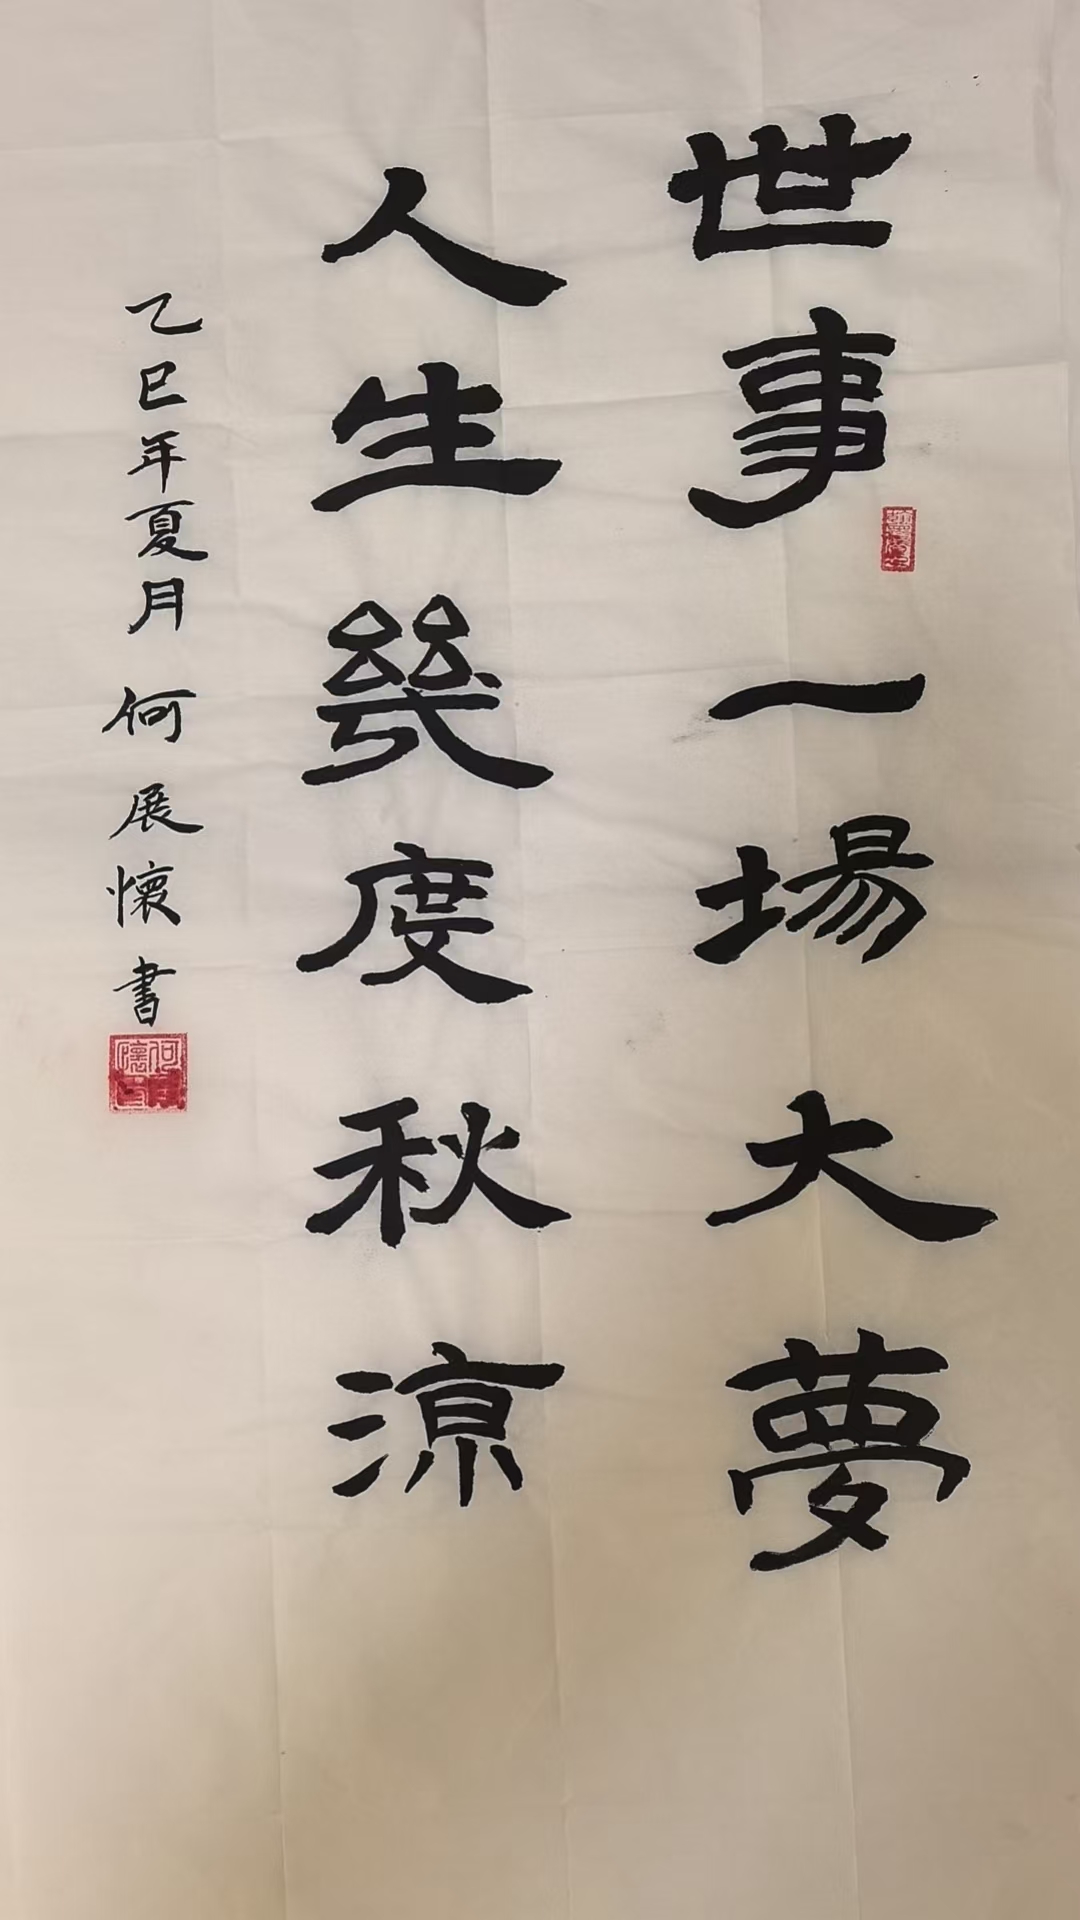 世事一場大夢
人生幾度秋涼
乙巳年夏月何展懷書